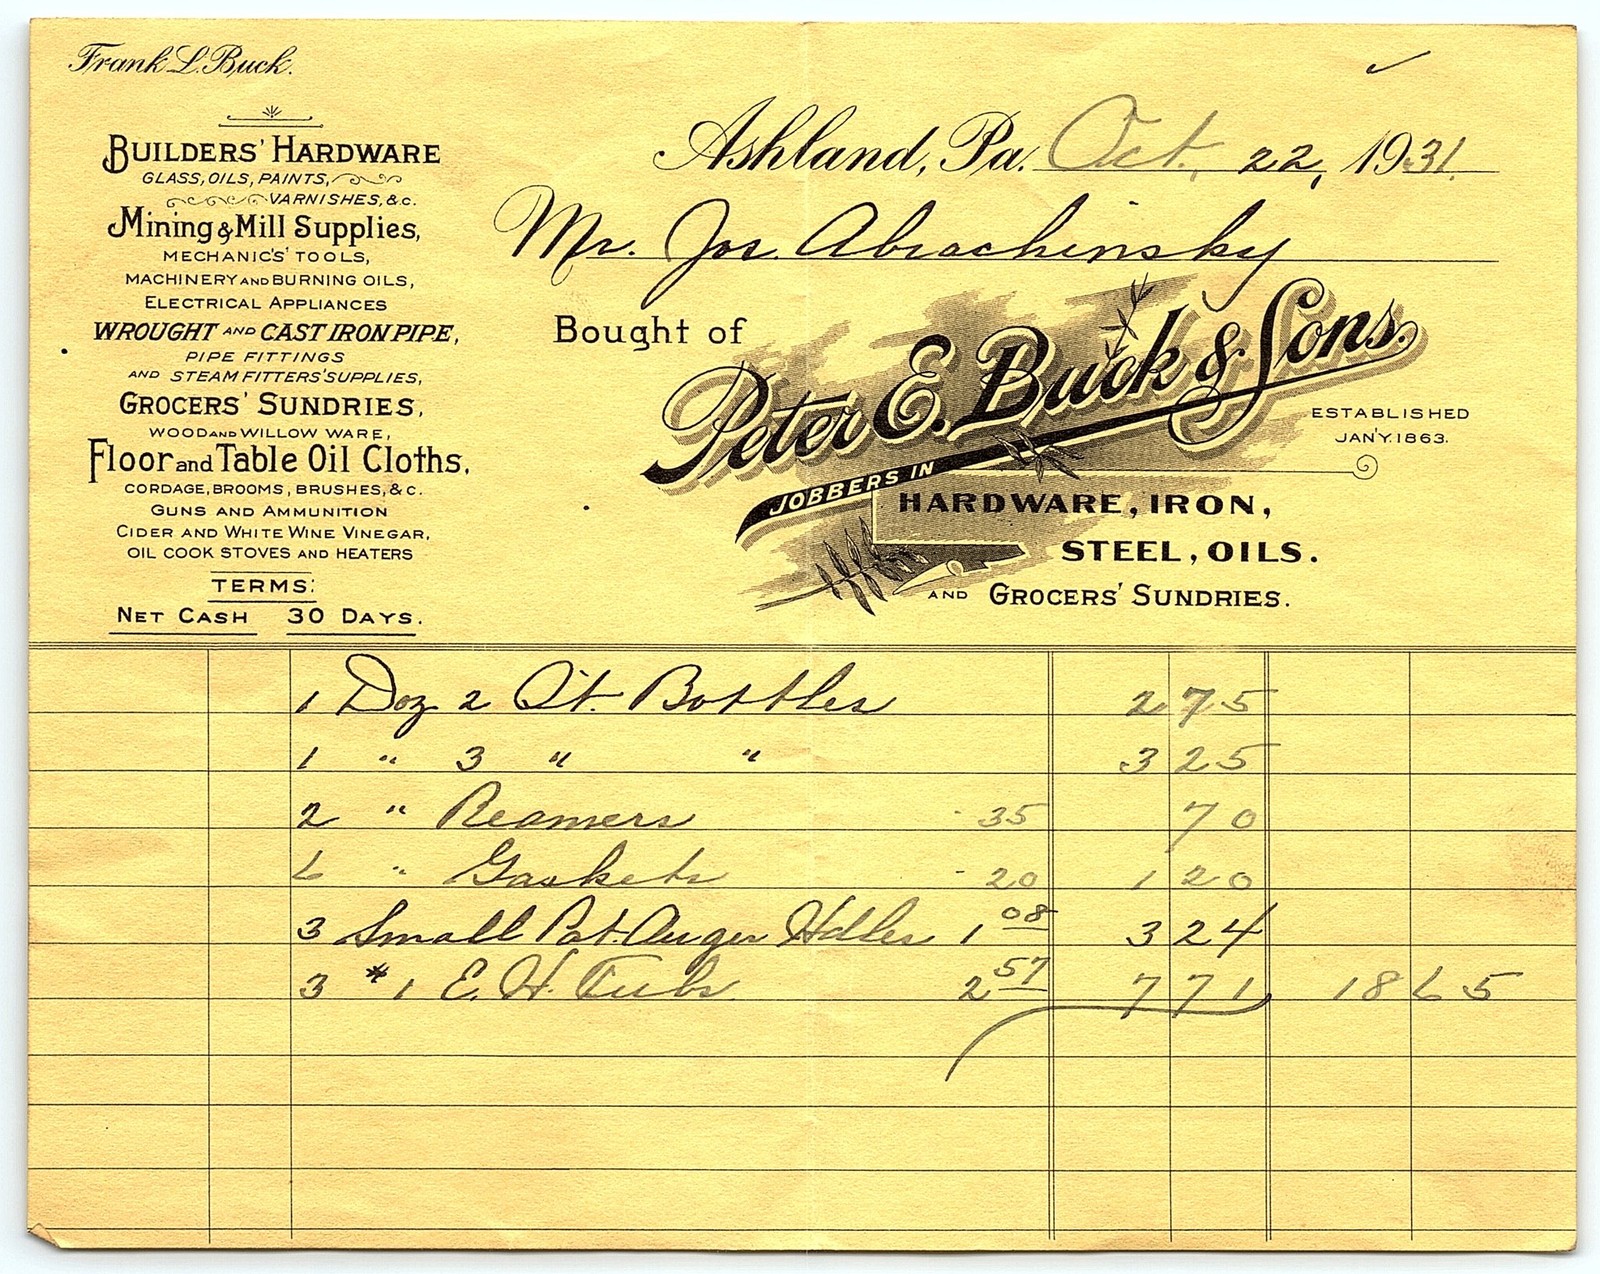 Frank L. Buck.
BUILDERS' HARDWARE
GLASS, OILS, PAINTS,
VARNISHES, &c.
Mining & Mill Supplies,
MECHANIC'S' TOOLS,
MACHINERY AND BURNING OILS,
ELECTRICAL APPLIANCES
WROUGHT AND CAST IRON PIPE,
PIPE FITTINGS
AND STEAM FITTERS' SUPPLIES,
GROCERS' SUNDRIES,
WOOD AND WILLOW WARE,
Floor and Table Oil Cloths,
CORDAGE, BROOMS, BRUSHES, & C.
GUNS AND AMMUNITION
CIDER AND WHITE WINE VINEGAR,
OIL COOK STOVES AND HEATERS
TERMS:
NET CASH 30 DAYS.
Ashland, Pa. Oct. 22, 1931.
Mr. Jos. Abrachinsky
Bought of
Peter E. Buck & Sons.
ESTABLISHED
JAN'Y. 1863.
JOBBERS IN
HARDWARE, IRON,
STEEL, OILS.
AND GROCERS' SUNDRIES.
1 Doz 2 Qt. Bottles 2 75
1 " 3 " " 3 25
2 " Reamers 35 70
6 " Gaskets 20 1 20
3 Small Pat. Auger Hdles 1 08 3 24
3 # 1 E. H. Tubs 2 57 7 71 18 65